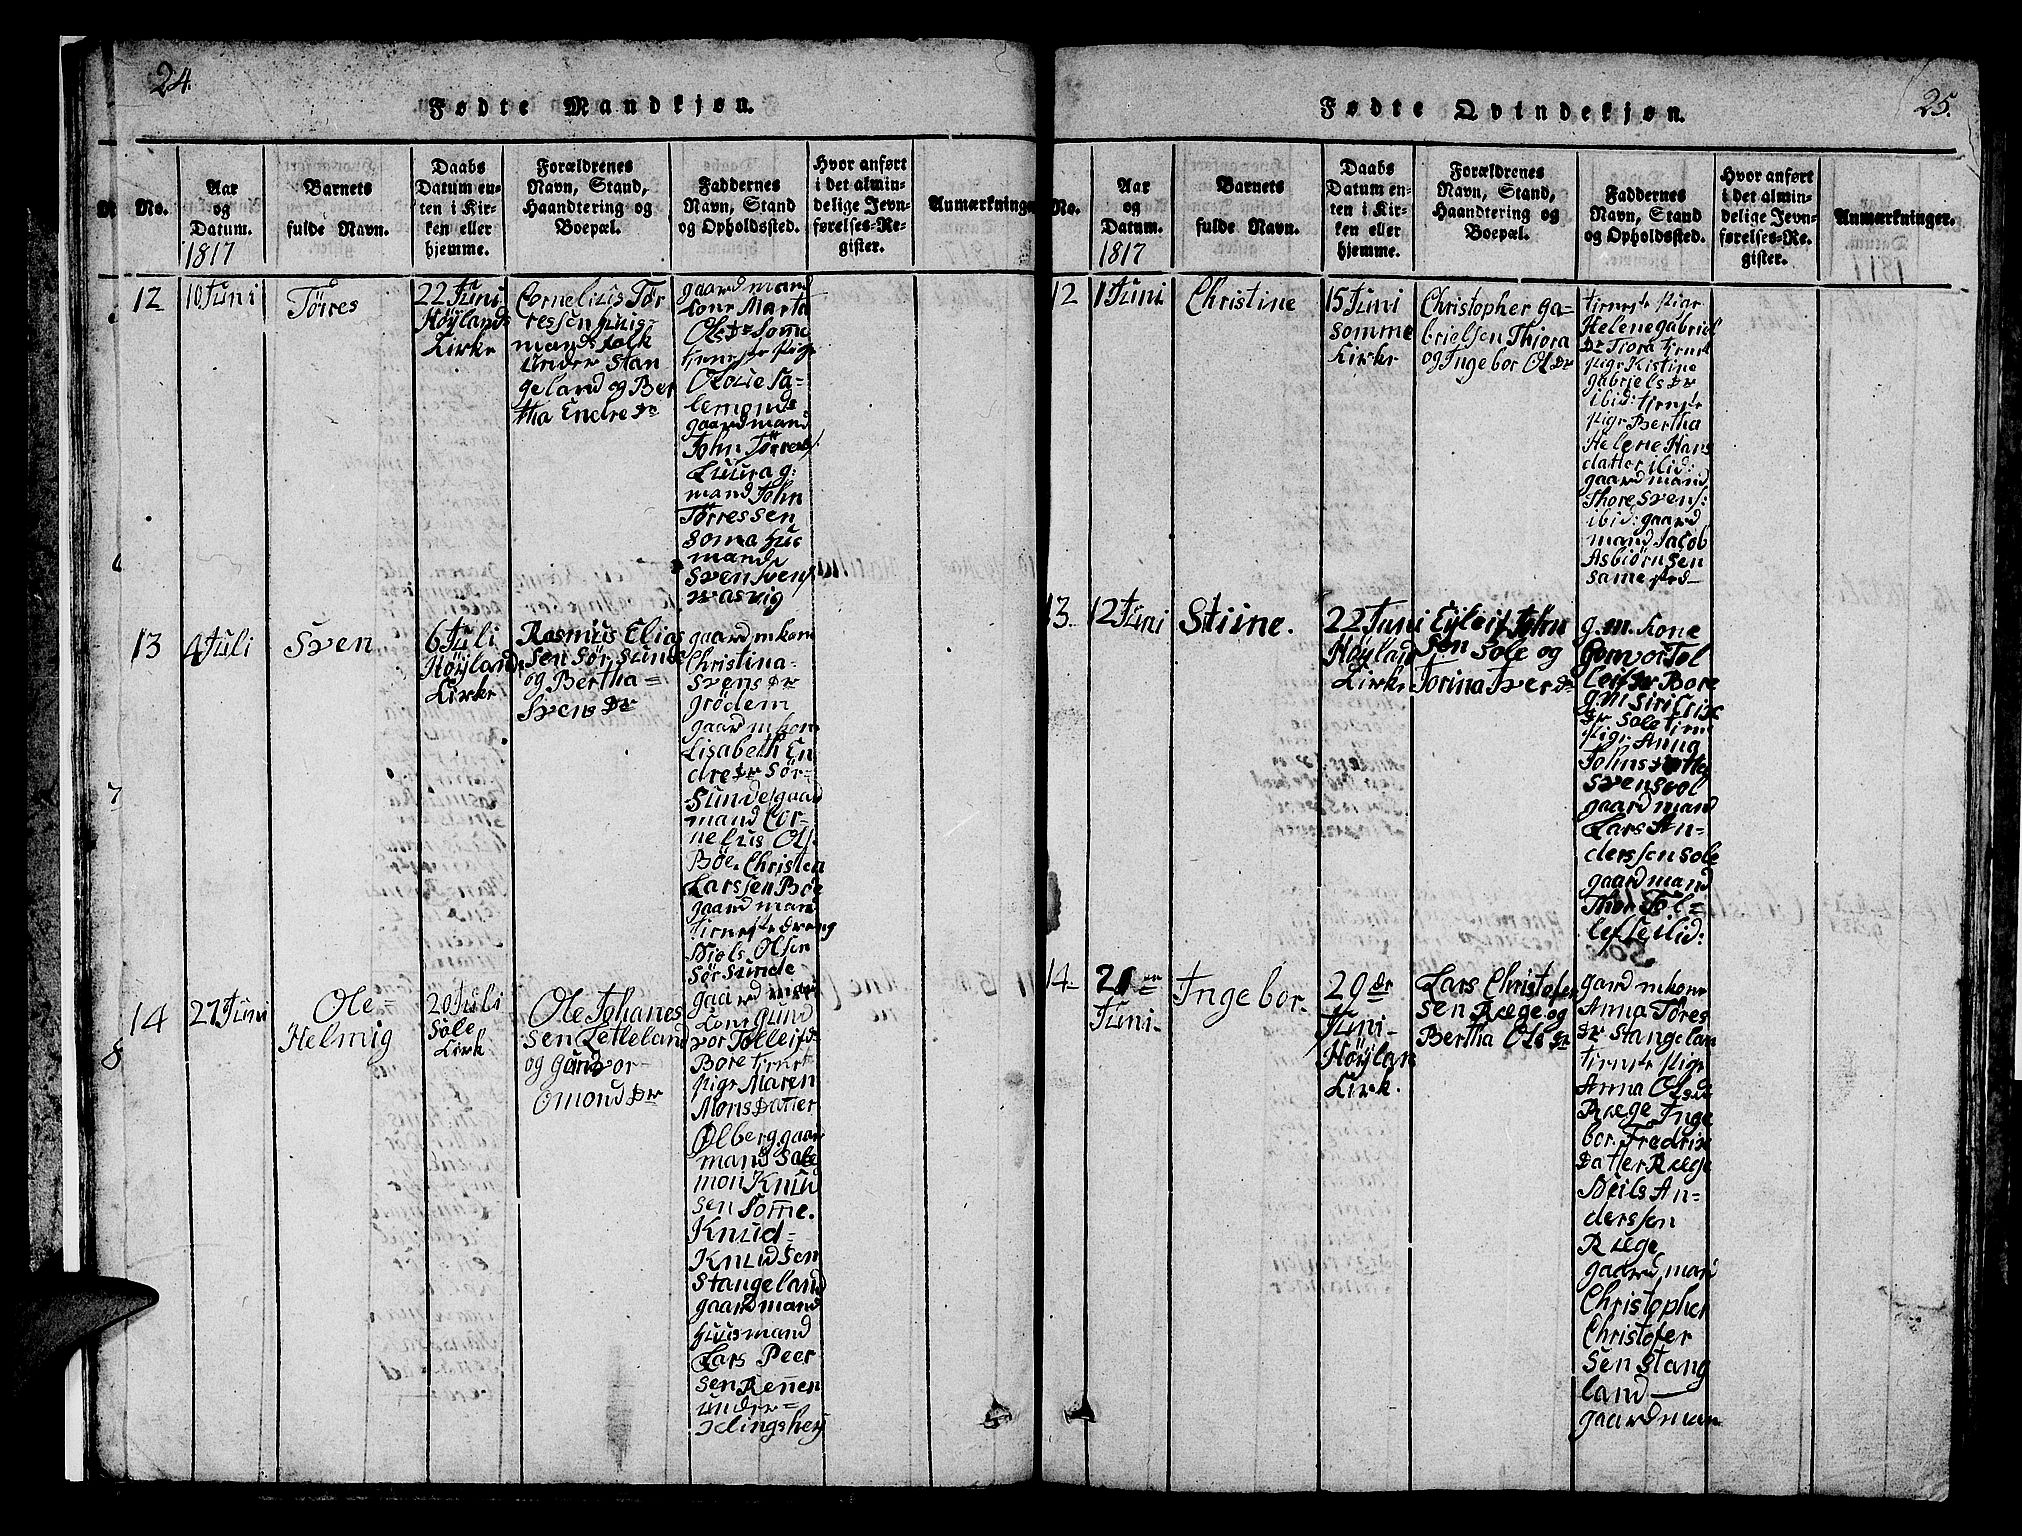 24.
Fødte Mandkjøn.
No.
Aar
og
Datum.
1817
Barnets
fulde Navn.
Daabs
Datum en-
ten i Kir-
ken eller
hjemme.
Forældrenes
Navn, Stand,
Haandtering og
Boepæl.
Faddernes
Navn, Stand
og Opholdssted.
Hvor anført
i det almin-
delige Jevn-
førelses-Re-
gister.
Anmærkninger
12
10 Juni
Törres
22 Juni
Höylands
Kirke
Cornelius Tör
ressen huus-
mands folk
under Stan
geland og Ber
tha Endre Dr
gaardmand
kone Marta
Ols Dr Somme
tjeneste Pige
Olovie Sa-
lemonds
gaardmand
John Törres
Luura g:
mand John
Törressen
Soma huc
mand
Sven Svens
vasvig
13
4 Juli
Sven
6 Juli
Höyland
Kirke
Rasmus Elias
sen Sör Sunde
og Bertha=
Svens Dr
gaardmkone
Christina-
Svens Dr
grödem
gaardmkone
Lisabeth En
dre Dr Sör-
Sunde gaard
mand Cor-
nelius Ols
Böe. Christen
Larssen Böe
gaardmand
tieneste dreng
Niels Olsen
Sör Sunde
14
27 Juni
Ole=
Helmig
20 Juli
Sole
Kirk
Ole Johanes
sen Letleland
og Gundvor-
Omond Dr
gaardmand
kone Gund
vor Tolleifd
Bore tienest
Pige Maren
Mons Datter
Ølberg. gaar
mand Sale
mon Knud
sen Somme.
Knud-
Knudsen
Stangeland
gaardmand
Huusmand
Lars Peer
sen Rennen
under=
Klingsheij
25.
Fødte Qvindekjøn.
No.
Aar
og
Datum.
1817
Barnets
fulde Navn.
Daabs
Datum en-
ten i Kir-
ken eller
hjemme.
Forældrenes
Navn, Stand,
Haandtering og
Boepæl.
Faddernes
Navn, Stand
og Opholdssted.
Hvor anført
i det almin-
delige Jevn-
førelses-Re-
gister.
Anmærkninger.
12
1 Juni
Christine
15 Juni
Somme
Kirke
Christopher Ga-
brielsen Thiora
og Ingebor Ols Dr
tieneste Pige
Helene gabriel
Dr Tiora tienest
Pige Kistine
gabriels Dr
ibid: tieneste
Pige Bertha
Helene Hans
datter ibid:
gaardmand
Thore Svens:
ibid: gaard
mand Jacob
Asbiörnsen
samesteds
13.
12 Juni
Stiine.
22 Juni
Höyland
Kirke
Eyleif John
sen Sole og
Torina Iver Dr
g.m. kone
Gonvor Tol
leifs Dr Bore
g.m Siri Erix
Dr Sole tiene
Pige Anna
Johns Datte
Svensvol
gaardmand
Lars An-
derssen Sole
gaardmand
Thor Tol=
lefse ibid:
Sole
14.
20 en
Juni.
Ingebor.
29 Dr
Juni-
Höylan
Kirk.
Lars Christofer
sen Ræge og
Bertha Ole Dr
gardmkone
Anna Töres
Dr Stangelan
tieneste Pige
Anna Olsd
Ræge Inge
bor. Fredrix
Datter Ræge
Neils An-
derssen
Ræge
gaardman
Christopher
Christofer
sen Stang
land-
gaardman